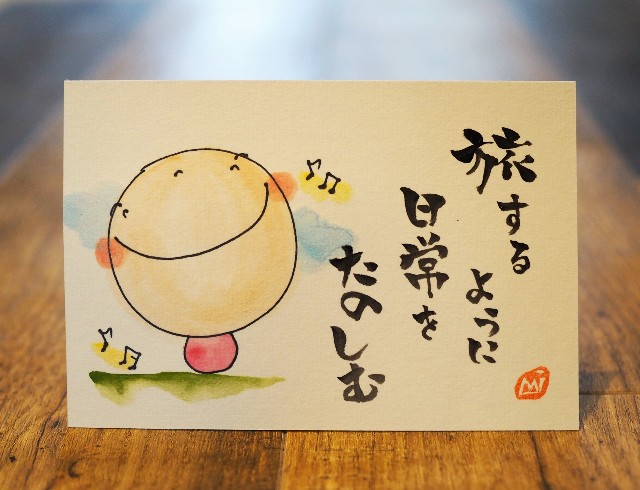 旅する
ように
日常を
たのしむ
MI